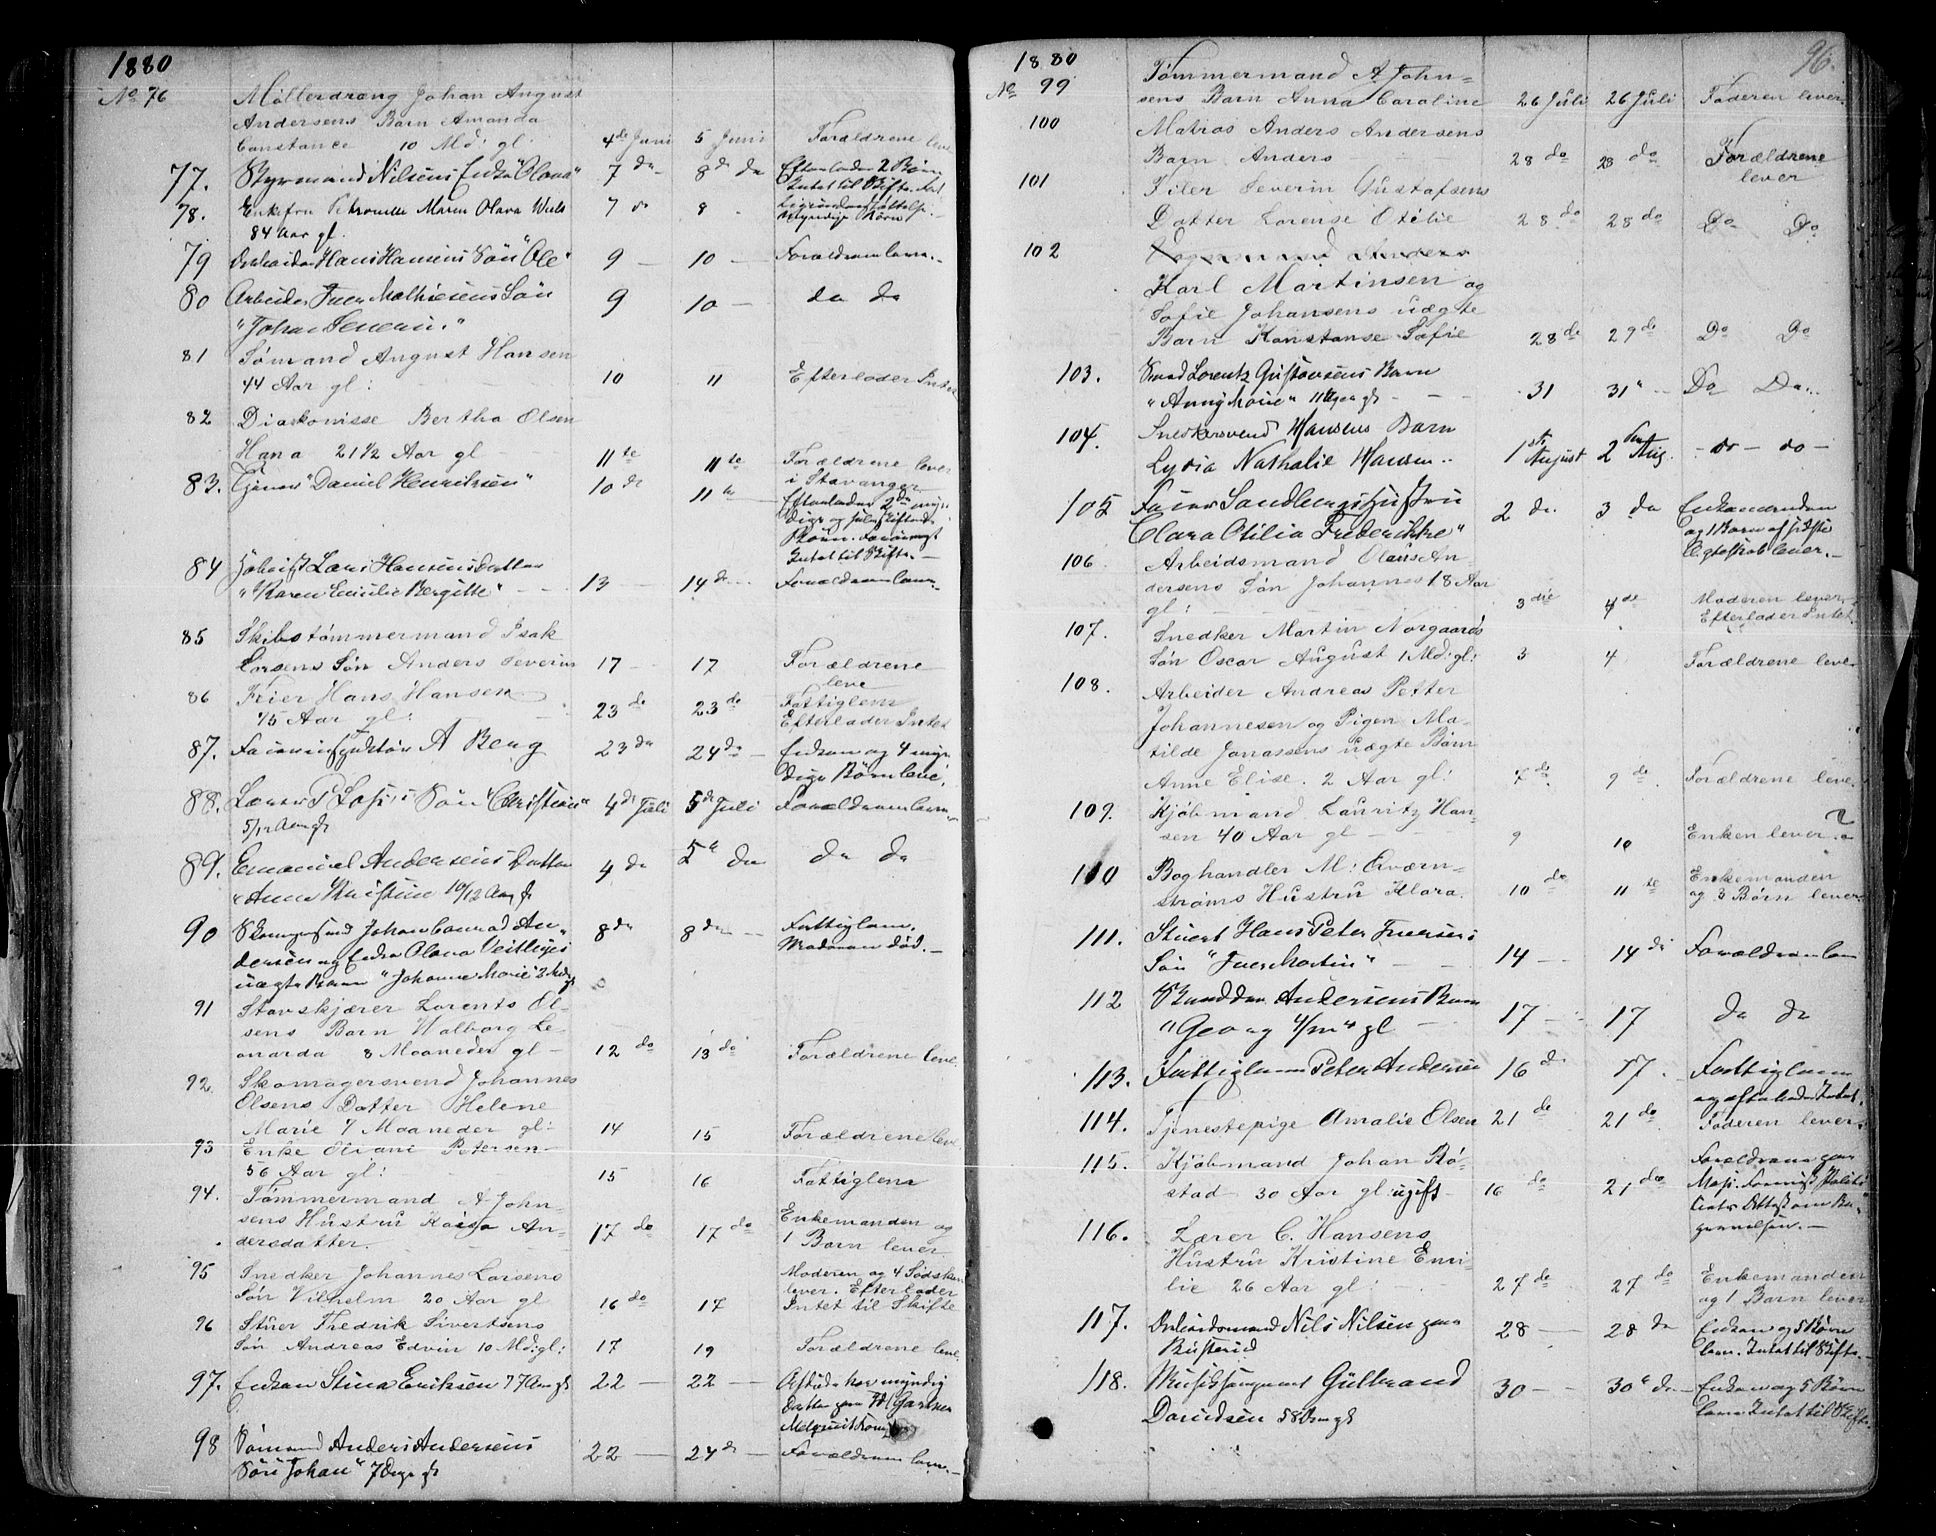 1880
No 76 Møllerdräng Johan August
Andersens Barn Amanda
Constance 10 Md: gl 4de Juni 5 Juni Forældrene leve
77. Styrmand Nilsens Enke "Olava" 7 do 8de do Efterlader 2 Børn
Intet til Skifte.
78. Enkefru Petronelle Maren Olava 7 do 8
84 Aar gl. myndige Børn
79 Arbeider Hans Hansens Søn "Ole" 9 — 10 — Forældrene leve.
80 Arbeider Iver Mathiesens Søn 9 10 — do do
"Johan Severin."
81 Sømand August Hansen
44 Aar gl: 10 11 Efterlader Intet
82 Diakonisse Bertha Olsen
Hana 21 1/2 Aar gl 11te 11te Forældrene lever
i Stavanger
83. "Daniel Henriksen" 10de 11te Efterlader 2de myn-
dige
Børn.
Intet til Skifte.
84 Lars Hansens Datter
"Karen Emilie Bergitte" 13 — 14de Forældrene leve.
85 Skibstømmermand Isak
Larsens Søn Anders Severin 17 17 Forældrene
leve
86 Feier Hans Hansen Fattiglem
75 Aar gl: 23do 23do Efterlader Intet
87. A Berg 23de 24de Enken og 4 myn-
dige Børn leve.
88. Søn "Christian" 4de Juli 5de Juli Forældrene leve
5/12 Aar gl
89. Emanuel Andersens Datter 4 do 5te do do do
"Anna Kristine 10/12 Aar gl
90 Johan Conrad An- 8de 8de Fattiglem.
dersen og Enke Olava Moderen død.
uægte Barn "Johanne Marie"
91 Stavskjærer Lorents Ol-
sens Barn Valborg Le-
onarda 8 Maaneder gl — 12do 13do Forældrene leve.
92. Skomagersvend Johannes
Olsens Datter Helene
Marie 7 Maaneder gl: 14 15 Forældrene leve
93 Enke Oliani Petersen
56 Aar gl: 15 16 Fattiglem
94. Tømmermand A John-
sens Hustru Kaisa An-
dersdatter. 17do 17do Enkemanden og
1 Barn lever
95 Snedker Johannes Larsens Moderen og 4 Sødsken
Søn Vilhelm 20 Aar gl 16do 17 lever. Efterlader
Intet til Skifte
96 Stuer Fredrik Sivertsens
Søn Andreas Edvin 10 Md: gl: 17 19 Forældrene leve.
97. Enken Stina Eriksen 77 Aar gl 22 — 22 — Afdøde har myndig
Datter
98 Sømand Anders Andersens
Søn "Johan" 7 Dage gl 22 — 24de — Forældrene leve.
1880 96.
No 99 Tømmermand A John-
sens Barn Anna Caroline 26 Juli 26 Juli Faderen lever.
100 Matros Anders Andersens
Barn Anders 28do 28do Forældrene
lever
101 Filer Severin Gustafsens
Datter Lorense Otilie 28do 28do Do Do
102
Karl Martinsen og
Sofie Johansens uægte
Barn Konstanse Sofie 28de 29de Do Do
103. Smed Lorentz Gustavsens Barn
"Anny Marie" 11 Uger gl 31 31 Do Do
104. Snedkersvend Hansens Barn
Lydia Nathalie Hansen.. 1ste August 2den Aug. - do - do -
105 Sandbergs Hustru 2 do 3 do Enkemanden
Clara Otilia Frederikke" og 1 Barn af sidste
Egteskab lever.
106 Arbeidsmand Olaus An-
dersens Søn Johannes 18 Aar
gl: 3die 4de Moderen lever
Efterlader Intet
107. Snedker Martin Norgaards
Søn Oscar August 1 Md: gl: 3 4 Forældrene leve
108. Arbeider Andreas Petter
Johannesen og Pigen Ma-
tilde Jonassens uægte Barn
Anne Elise. 2 Aar gl: 7de 9de Forældrene leve.
109. Kjøbmand Lauritz Han-
sen 40 Aar gl 9 10 Enken lever
110 Boghandler M: Qværn-
strøms Hustru Klara. 10do 11te Enkemanden
og 3 Børn lever
111. Stuert Hans Peter Iversens
Søn "Iver Martin" 14 — 14de Forældrene leve
112 Andersens Barn
"Georg 4/m" gl 17 17 do do
113. Fattiglem Peter Andersen 16de 17. Fattiglem
og efterlader Intet.
114. Tjenestepige Amalie Olsen 21de 21do Faderen lever.
115. Kjøbmand Johan Rø-
stad 30 Aar gl: ugift 16do 21do Forældrene
116. Lærer C. Hansens
Hustru Kristine Emi-
lie 26 Aar gl: 27de 27do Enkemanden
og 1 Barn lever
117. Arbeidsmand Nils Nilsen 28 — 28 do Enken og 5 Børn
leve. Intet til Skifte.
118. Gulbrand 30 — 30te do Enken og 5 Børn
Davidsen 58 Aar gl leve Intet til Skifte.